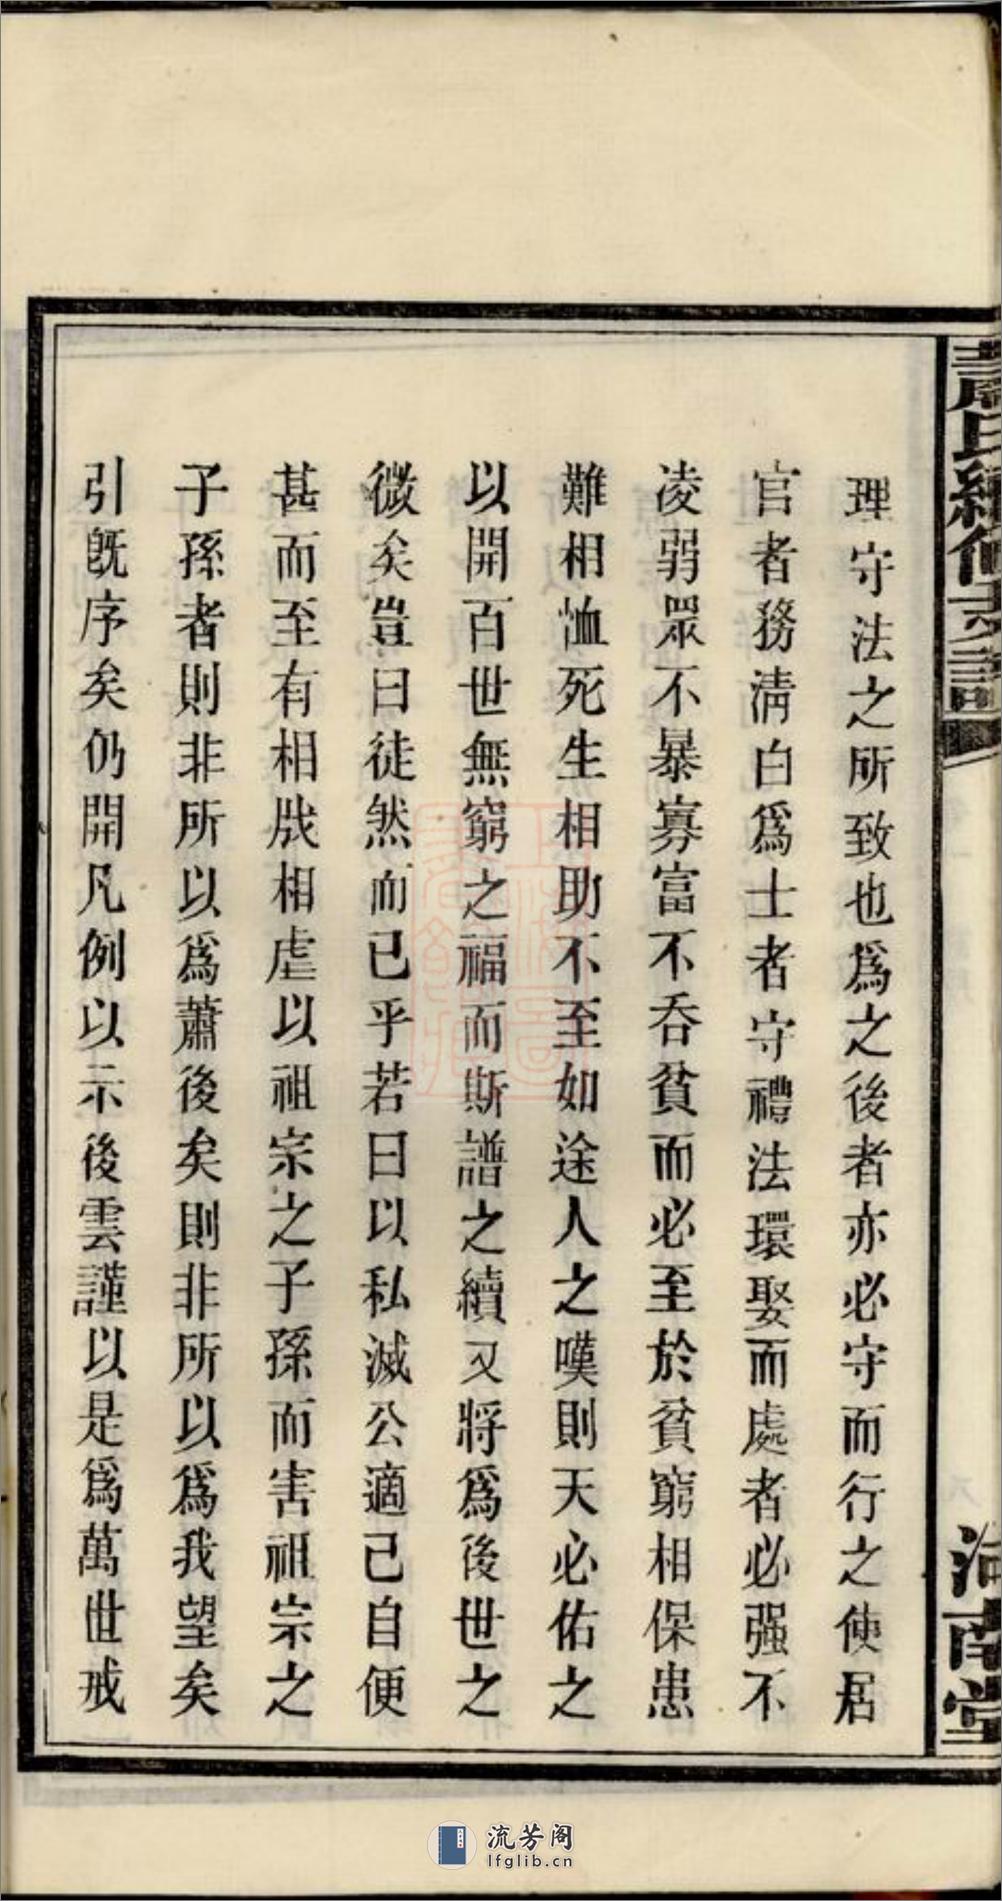 理守法之所致也爲之後者亦必守而行之使居
官者務淸白爲士者守禮法環娶而處者必强不
凌弱眾不暴寡富不吞貧而必至於貧窮相保患
難相恤死生相助不至如途人之嘆則天必佑之
以開百世無窮之福而斯譜之續又將爲後世之
微矣豈曰徒然而已乎若曰以私滅公適己自便
甚而至有相戕相虐以祖宗之子孫而害祖宗之
子孫者則非所以爲蕭後矣則非所以爲我望矣
引旣序矣仍開凡例以示後雲謹以是爲萬世戒
流芳阁
lfglib.cn